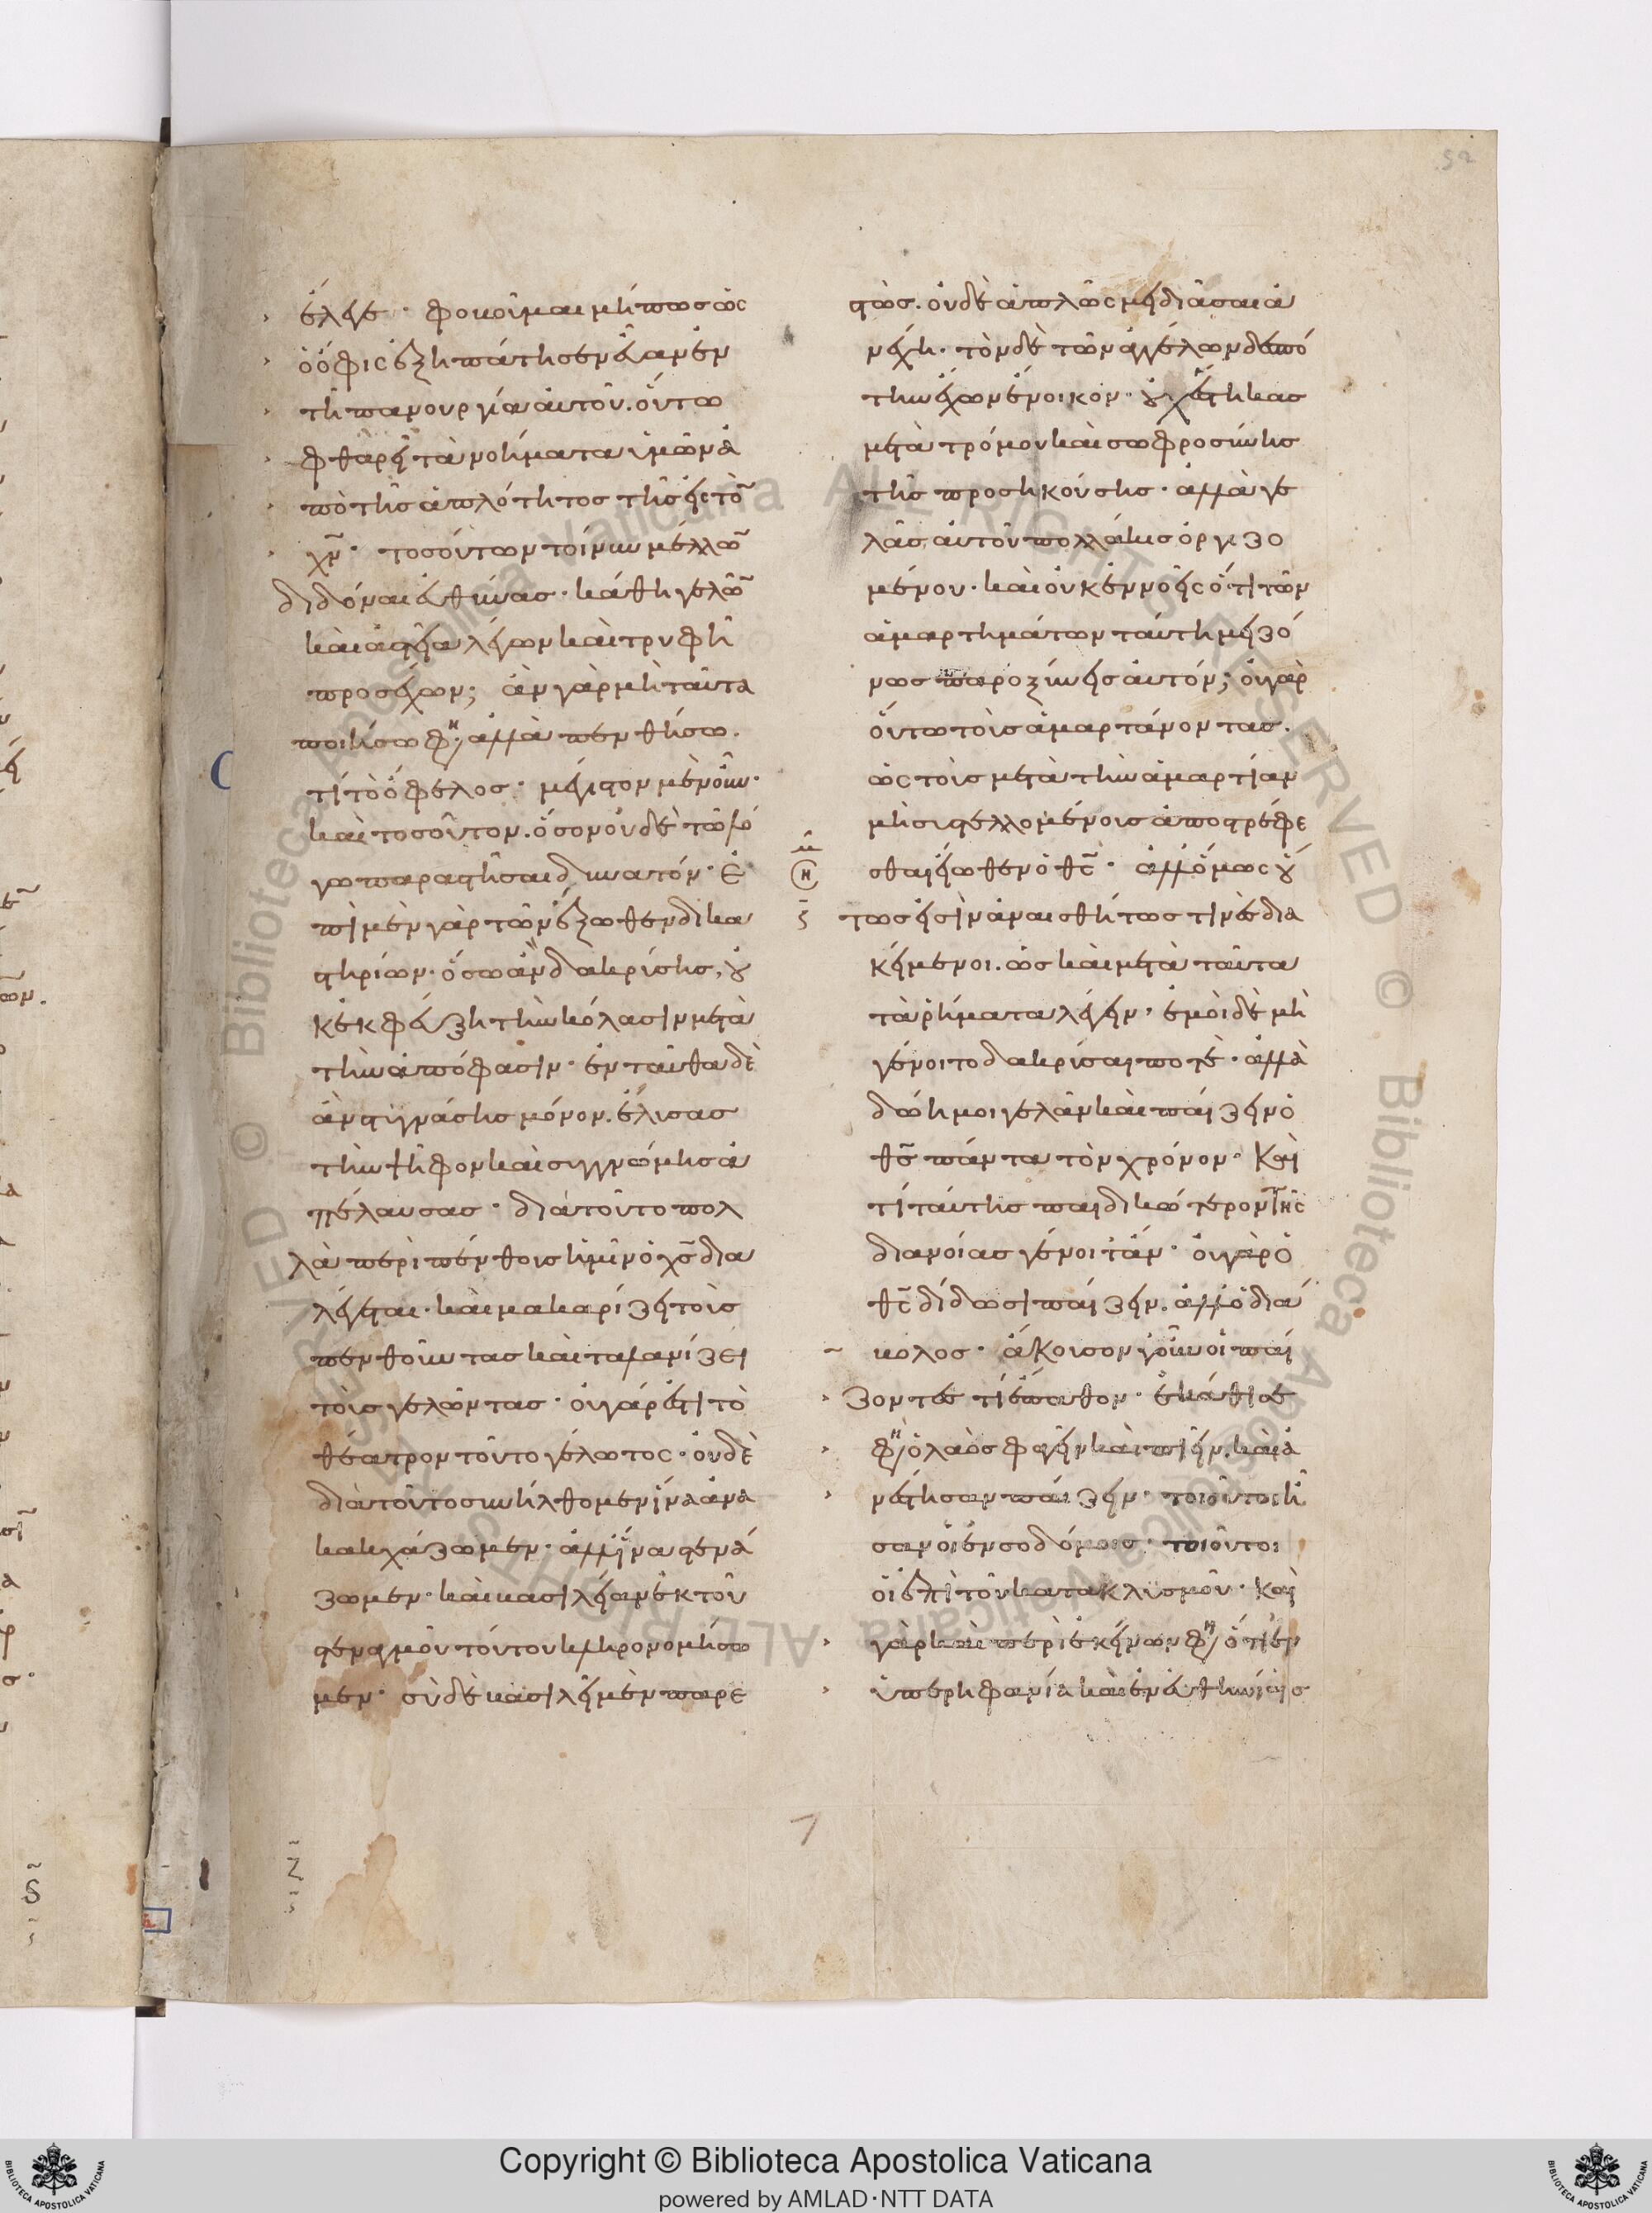 52
ἔλεγε· φοβοῦμαι μήπως ὡς
ὁ ὄφις ἐξηπάτησεν εὔαν ἐν
τῆ πανουργία αὐτοῦ. οὕτω
φθαρῆ τὰ νοήματα ὑμῶν ἀ
πὸ τῆς ἁπλότητος τῆς εἰς τὸ̅
χν̅· τοσούτων τοίνυν μέλλω̅
διδόναι εὐθύνας· κάθη γελῶ̅
καὶ ἀστεῖα λέγων καὶ τρυφῆ
προσέχων; ἂν γὰρ μὴ ταῦτα
ποιήσω φη; ἀλλὰ πενθήσω.
τί τὸ ὄφελος· μέγιστον μὲν οὖν·
καὶ τοσοῦτον. ὅσον οὐδὲ τῶ λό
γω παραστῆσαι δυνατόν· ἐ
πὶ μὲν γὰρ τῶν ἔξωθεν δικα
στηρίων· ὅσω ἂν δακρύσης, οὐ
κ ἐκφεύξη τὴν κόλασιν μετὰ
τὴν ἀπόφασιν· ἐνταῦθα δὲ
ἂν στυγνάσης μόνον. ἔλυσας
τὴν ψῆφον καὶ συγγνώμης ἀ
πέλαυσας· διατοῦτο πολ
λὰ περὶ πένθους ἡμῖν ὁ χς̅ δια
λέγεται· καὶ μακαρίζει τοὺς
πενθοῦντας καὶ ταλανίζει
τοὺς γελῶντας· οὐ γάρ ἐστι τὸ
θέατρον τοῦτο γέλωτος· οὐδὲ
διατοῦτο συνήλθομεν ἵνα ἀνα
καγχάζωμεν· ἀλλ' ἵνα στενά
ζωμεν· καὶ βασιλείαν ἐκ τοῦ
στεναγμοῦ τούτου κληρονομήσω
μεν· σὺ δὲ βασιλεῖ μὲν παρε
στώς. οὐδὲ ἁπλῶς μειδιᾶσαι ἀ
νέχη· τὸν δὲ τῶν ἀγγέλων δεσπό
την ἔχων ἔνοικον· οὐχ ἕστηκας
μετὰ τρόμου καὶ σωφροσύνης
τῆς προσηκούσης· ἀλλὰ γε
λᾶς αὐτοῦ πολλάκις ὀργιζο
μένου· καὶ οὐκ ἐννοεῖς ὅτι τῶν
ἁμαρτημάτων ταύτη μειζό
νως παροξύνεις αὐτόν; οὐ γὰρ
οὕτω τοὺς ἁμαρτάνοντας.
ὡς τοὺς μετὰ τὴν ἁμαρτίαν
μὴ συστελλομένους ἀποστρέφε
σθαι εἴωθεν ὁ θς̅· ἀλλ' ὅμως οὕ
τως εἰσὶν ἀναισθήτως τινὲς δια
κείμενοι. ὡς καὶ μετὰ ταῦτα
τὰ ῥήματα λέγειν, ἐμοὶ δὲ μὴ
γένοιτο δακρύσαι ποτὲ· ἀλλὰ
δώη μοι γελᾶν καὶ παίζειν ὁ
θς̅ πάντα τὸν χρόνον· Καὶ
τί ταύτης παιδικώτερον τῆς
διανοίας γένοιτ' ἄν· οὐ γὰρ ὁ
θς̅ δίδωσι παίζειν. ἀλλ' ὁ διά
βολος· ἄκουσον γοῦν οἱ παί
ζοντες τί ἔπαθον· ἐκάθισε
φη ὁ λαὸς φαγεῖν καὶ πιεῖν. καὶ ἀ
νέστησαν παίζειν· τοιοῦτοι ἦ
σαν οἱ ἐν σοδόμοις· τοιοῦτοι
οἱ ἐπὶ τοῦ κατακλυσμοῦ· Καὶ
γὰρ καὶ περὶ ἐκείνων φη ὅτι ἐν
ὑπερηφανία καὶ ἐν εὐθηνίαις
Copyright © Biblioteca Apostolica Vaticana
powered by AMLAD·NTT DATA